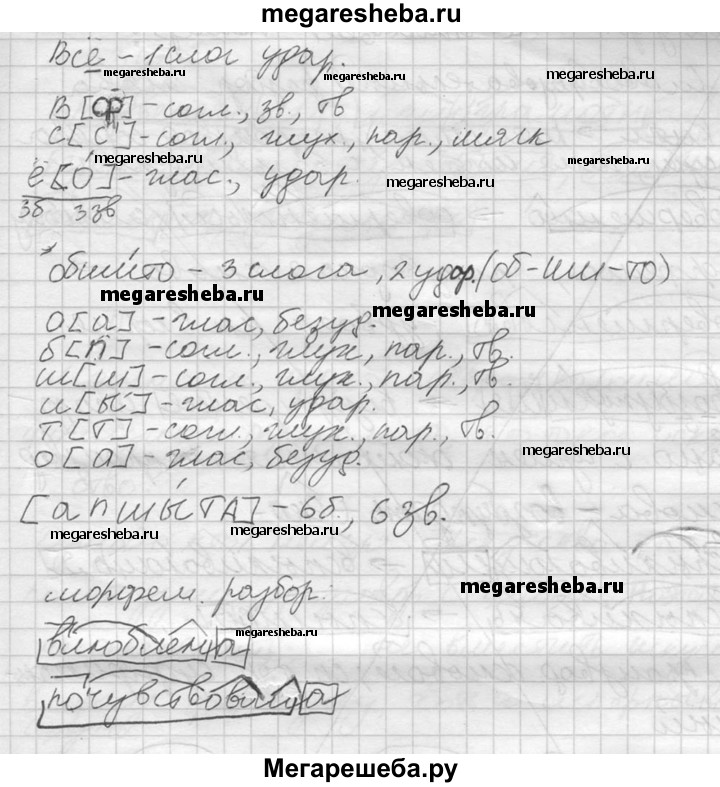 megaresheba.ru
Всё – 1 слог удар.
megaresheba.ru megaresheba.ru megaresheba.ru
В [ф] – согл., зв., тв
С [с'] – согл., глух., пар., мягк
megaresheba.ru megaresheba.ru
ё [о́] – глас., удар.
megaresheba.ru
3б 3 зв
обши́то – 3 слога, 2 удар. (об-ши-то)
megaresheba.ru megaresheba.ru
о [а] – глас, безуд.
б [п] – согл., глух., пар., тв.
ш [ш] – согл., глух., пар., тв.
и [ы] – глас, удар.
т [т] – согл., глух., пар., тв.
megaresheba.ru
о [а] – глас, безуд.
[апшы́та] – 6б., 6 зв.
megaresheba.ru megaresheba.ru
морфем. разбор:
megaresheba.ru
megaresheba.ru
влюблена
Мегарешеба.ру